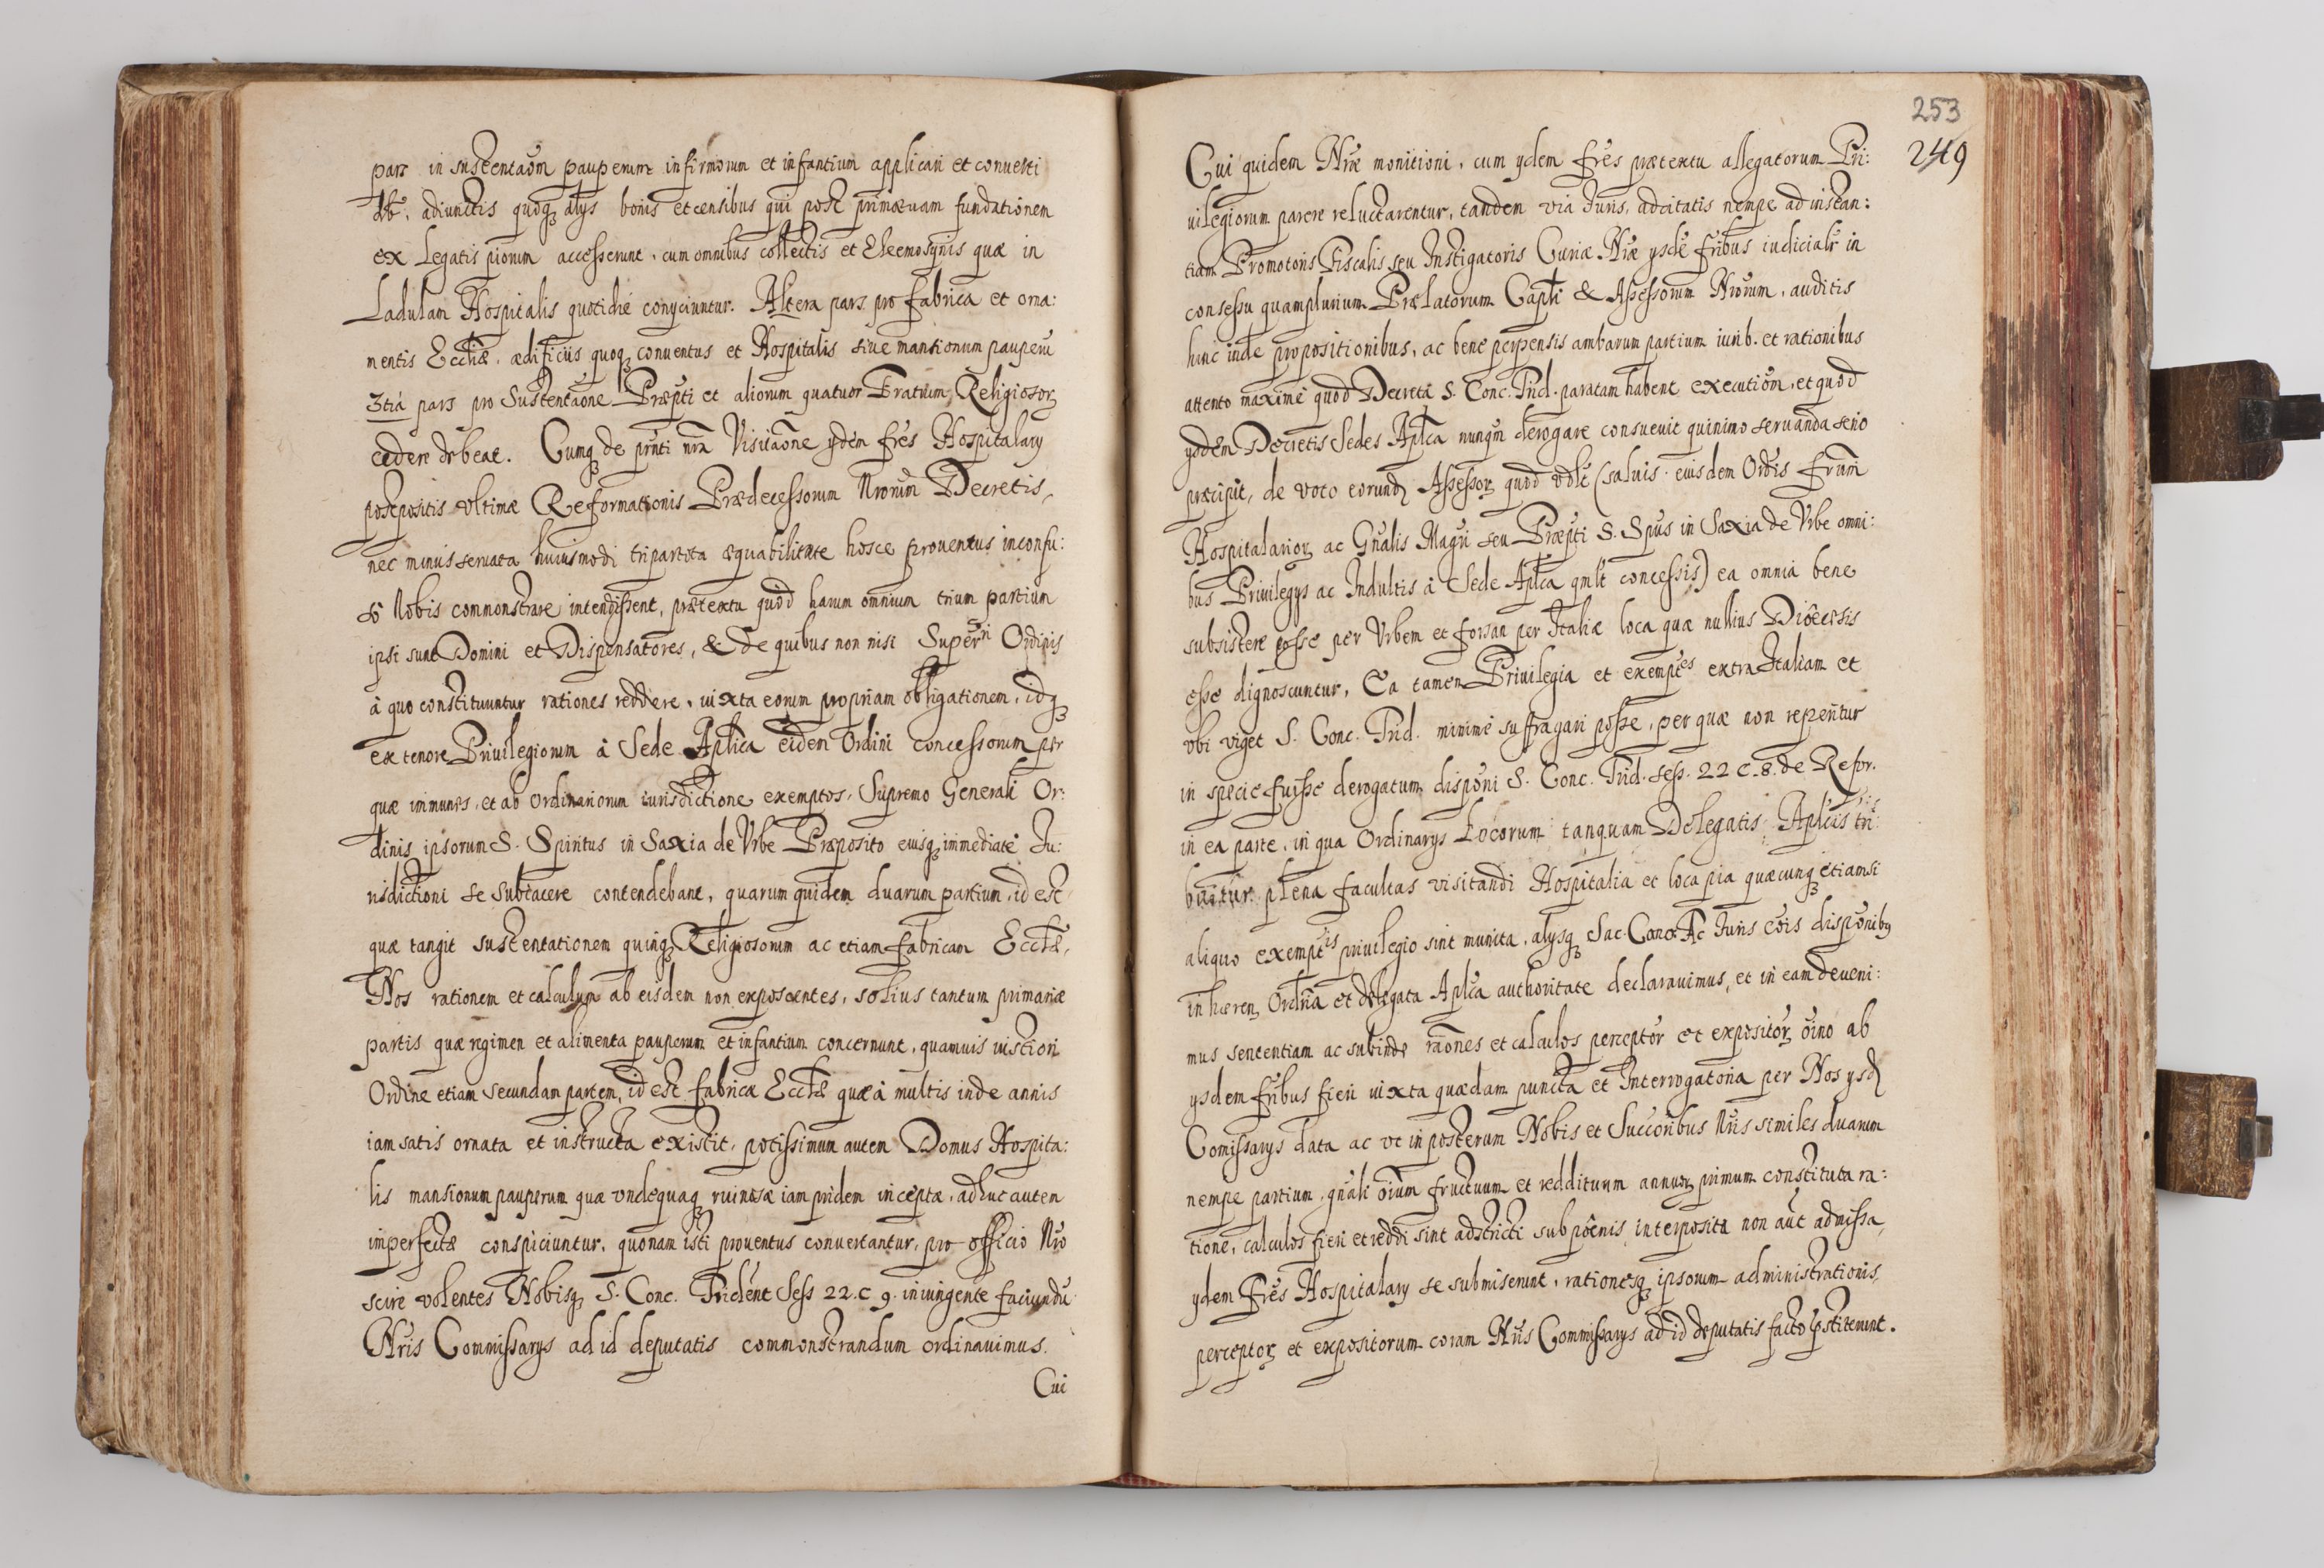 pars in sustentaõm pauperum infirmorum et infantium applicari et conuerti
db̃t, adiunctis quoq alys bonis et censibus qui post primæuam fundationem
ex Legatis piorum accesserunt, cum omnibus collectis et Eleemosynis quæ in
Ladulam Hospitalis quotidie conyciuntur. Altera pars pro fabrica et orna:
mentis Eccliæ, ædificijs quoq conuentus et Hospitalis siue mansionum pauperũ
3tia pars pro Sustentaõne Præpti et aliorum quatuor Fratrum Religiosorꝝ
cedere debeat. Cumq de prñti nrã Visitaõne ydem frẽs Hospitalary
postpositis vltimæ Reformationis Prædecessorum Nrorum Decretis,
nec minus seruata huiusmodi tripartita æquabilitate hosce prouentus, inconsu:
lto Nobis commonstrare intendissent, prætextu quod harum omnium trium partium
ipsi sunt Domini et Dispensatores, & de quibus non nisi Superri Ordinis
à quo constituuntur rationes reddere, iuxta eorum propriam obligationem, idq
ex tenore Priuilegiorum à Sede Aplica eidem Ordini concessorum per
quæ immunes, et ab Ordinariorum iurisdictione exemptos, Supremo Generali Or:
dinis ipsorum S. Spiritus in Saxia de Vrbe Præposito eiusq immediatè Ju:
risdictioni se subiacere contendebant, quarum quidem duarum partium, id est
quæ tangit sustentationem quinq Religiosorum ac etiam fabricam Eccliæ,
Nos rationem et calculum ab eisdem non exposcentes, solius tantum primariæ
partis quæ regimen et alimenta pauperum et infantium concernunt, quamuis iustiori
Ordine etiam secundam partem, id est fabricæ Eccliæ quæ à multis inde annis
iam satis ornata et instructa existit, potissimum autem Domus Hospita:
lis mansionum pauperum quæ vndequaq ruinosæ iam pridem inceptæ, adhuc autem
imperfectæ conspiciuntur, quonam isti prouentus conuertantur, pro officio Nro
scire volentes Nobisq S. Conc. Trident Sess 22. c 9. iniungente faciundũ
Nris Commissarys ad id deputatis commonstrandum ordinauimus.
Cui
253
249
Cui quidem Nræ monitioni, cum ydem frẽs prætextu allegatorum Pri:
uilegiorum parere reluctarentur, tandem via Juris, adcitatis nempe ad instan:
tiam Promotoris Fiscalis seu Instigatoris Curiæ Nræ ysdẽ fribus iudicialr̃ in
consessu quamplurium Prælatorum Capli & Assessorum Nrorum, auditis
hinc inde propositionibus, ac bene perpensis ambarum partium iurib. et rationibus
attento maximè quod Decreta S. Conc. Trid. paratam habent executiõm, et quod
ysdem Decretis Sedes Aplca nunqm̃ derogare consueuit quinimo seruanda serio
præcipit, de voto eorundꝫ Assessorꝝ quod vdlt (saluis eiusdem Ordis frum
Hospitalariorꝝ ac Gñalis Magri seu Præpti S. Spus in Saxia de Vrbe omni:
bus Priuilegys ac Indultis à Sede Aplca qmlt concessis) ea omnia bene
subsistere posse per Vrbem et forsan per Italiæ loca quæ nullius Dioecesis
esse dignoscuntur, Ea tamen Priuilegia et exempes extra Italiam et
vbi viget S. Conc. Trid. minimè suffragari posse, per quæ non reperitur
in specie fuisse derogatum dispõni S. Conc. Trid. sess. 22 c. 8. de Refor.
in ea parte, in qua Ordinarys Locorum tanquam Delegatis Aplcis tri:
buitur plena facultas visitandi Hospitalia et loca pia quæcunq etiamsi
aliquo exemptis priuilegio sint munita, alysq Sac. Cano: Ac Juris cõis dispõnibꝫ
in hæren. Ordria et delegata Aplca authoritate declarauimus, et in eam deueni:
mus sententiam ac subinde raõnes et calculos perceptorꝝ et expositorꝝ oino ab
ysdem fribus fieri iuxta quædam puncta et Interrogatoria per Nos ysdꝫ
Comissarys data ac vt in posterum Nobis et Succoribus Nris similes duarum
nempe partium, gñali oium fructuum et reddituum annuorꝝ primum constituta ra:
tione, calculos fieri et reddi sint adstricti sub poenis, interposita non aut admissa,
ydem Frẽs Hospitalary se submiserunt, rationesq ipsorum administrationis,
perceptorꝝ et expositorum coram Nris Commissarys ad id deputatis facto pstiterunt.